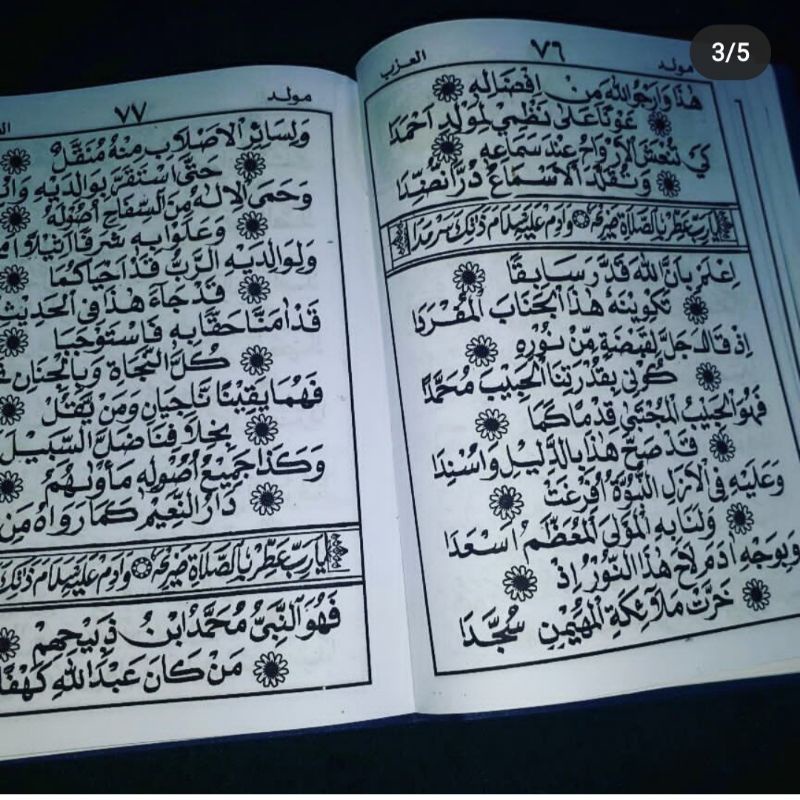 3/5
مولد ٧٦ العزب
هٰذَا وَارْجُو اللهَ مِنْ اِفْضَالِهِ
عَوْنًا عَلٰى نَظْمِيْ لِمَوْلِدِ اَحْمَدَا
كَيْ تَنْعَشَ الْاَرْوَاحُ عِنْدَ سَمَاعِهِ
وَتُقَلَّدَ الْاَسْمَاعُ دُرًّا نُضِّدَا
يَا رَبِّ عَطِّرْ بِالصَّلَاةِ ضَرِيْحَهُ وَاَدِمْ عَلَيْهِ سَلَامَ ذٰلِكَ سَرْمَدَا
اِعْلَمْ بِاَنَّ اللهَ قَدَّرَ سَابِقًا
تَكْوِيْنَهُ هٰذَا الْجَنَابَ الْمُفْرَدَا
اِذْ قَالَ جَلَّ لِقَبْضَةٍ مِنْ نُوْرِهِ
كُوْنِيْ بِقُدْرَتِنَا الْحَبِيْبَ مُحَمَّدًا
فَهُوَ الْحَبِيْبُ الْمُجْتَبٰى قِدْمًا كَمَا
قَدْ صَحَّ هٰذَا بِالدَّلِيْلِ وَاُسْنِدَا
وَعَلَيْهِ فِى الْاَزَلِ النُّبُوَّةُ اُفْرِغَتْ
وَلَنَا بِهِ الْمَوْلَى الْمُعَظَّمُ اَسْعَدَا
وَبِوَجْهِ اٰدَمَ لَاحَ هٰذَا النُّوْرُ اِذْ
خَرَّتْ مَلَآئِكَةُ الْمُهَيْمِنِ سُجَّدَا
مولد ٧٧
وَلِسَائِرِ الْاَصْلَابِ مِنْهُ مُنَقَّلٌ
حَتَّى اسْتَقَرَّ بِوَالِدَيْهِ
وَحَمَى الْاِلٰهُ مِنَ السِّفَاحِ اُصُوْلَهُ
وَعَلَوْا بِهِ شَرَفًا اَثِيْلًا
وَلِوَالِدَيْهِ الرَّبُّ قَدْ اَحْيَا كَمَا
قَدْ جَاءَ هٰذَا فِى الْحَدِيْثِ
قَدْ اٰمَنَا حَقًّا بِهِ فَاسْتَوْجَبَا
كُلَّ النَّجَاةِ وَبِالْجِنَانِ
فَهُمَا يَقِيْنًا نَاجِيَانِ وَمَنْ يَقُلْ
بِخِلَافِنَا ضَلَّ السَّبِيْلَ
وَكَذَا جَمِيْعُ اُصُوْلِهِ مَأْوٰىهُمُ
دَارُ النَّعِيْمِ كَمَا رَوَاهُ مَنِ
يَا رَبِّ عَطِّرْ بِالصَّلَاةِ ضَرِيْحَهُ وَاَدِمْ عَلَيْهِ سَلَامَ ذٰلِكَ
فَهُوَ النَّبِيُّ مُحَمَّدُ ابْنُ ذَبِيْحِهِمْ
مَنْ كَانَ عَبْدَ اللهِ كَهْفًا